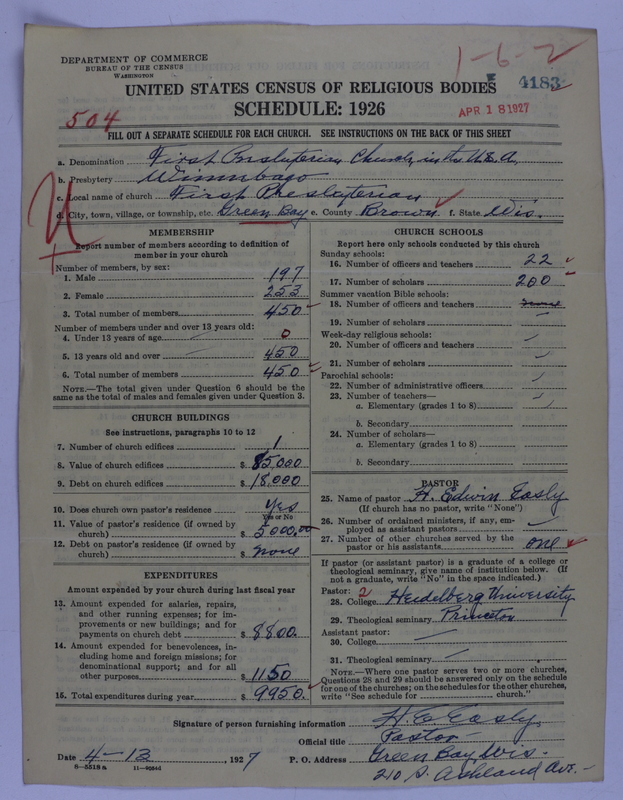 DEPARTMENT OF COMMERCE
BUREAU OF THE CENSUS
WASHINGTON
1-6-2
4183
UNITED STATES CENSUS OF RELIGIOUS BODIES
SCHEDULE: 1926
APR 18 1927
504
FILL OUT A SEPARATE SCHEDULE FOR EACH CHURCH. SEE INSTRUCTIONS ON THE BACK OF THIS SHEET
a. Denomination First Presbyterian Church, in the U.S.A.
b. Presbytery Winnebago
c. Local name of church First Presbyterian
d. City, town, village, or township, etc. Green Bay e. County Brown f. State Wis.
MEMBERSHIP
Report number of members according to definition of member in your church
Number of members, by sex:
1. Male 197
2. Female 253
3. Total number of members 450
Number of members under and over 13 years old:
4. Under 13 years of age 0
5. 13 years old and over 450
6. Total number of members 450
NOTE.—The total given under Question 6 should be the same as the total of males and females given under Question 3.
CHURCH BUILDINGS
See instructions, paragraphs 10 to 12
7. Number of church edifices 1
8. Value of church edifices $ 85,000
9. Debt on church edifices $ 18,000
10. Does church own pastor's residence Yes
Yes or No
11. Value of pastor's residence (if owned by church) $ 5000.00
12. Debt on pastor's residence (if owned by church) $ none
EXPENDITURES
Amount expended by your church during last fiscal year
13. Amount expended for salaries, repairs, and other running expenses; for improvements or new buildings; and for payments on church debt $ 8800.
14. Amount expended for benevolences, including home and foreign missions; for denominational support; and for all other purposes $ 1150
15. Total expenditures during year $ 9950.
CHURCH SCHOOLS
Report here only schools conducted by this church
Sunday schools:
16. Number of officers and teachers 22
17. Number of scholars 200
Summer vacation Bible schools:
18. Number of officers and teachers
19. Number of scholars
Week-day religious schools:
20. Number of officers and teachers
21. Number of scholars
Parochial schools:
22. Number of administrative officers
23. Number of teachers—
a. Elementary (grades 1 to 8)
b. Secondary
24. Number of scholars—
a. Elementary (grades 1 to 8)
b. Secondary
PASTOR
25. Name of pastor H. Edwin Easly
(If church has no pastor, write "None")
26. Number of ordained ministers, if any, employed as assistant pastors
27. Number of other churches served by the pastor or his assistants one
If pastor (or assistant pastor) is a graduate of a college or theological seminary, give name of institution below. (If not a graduate, write "No" in the space indicated.)
Pastor: 2
28. College Heidelberg University
29. Theological seminary Princeton
Assistant pastor:
30. College
31. Theological seminary
NOTE.—Where one pastor serves two or more churches, Questions 28 and 29 should be answered only on the schedule for one of the churches; on the schedules for the other churches, write "See schedule for church."
Signature of person furnishing information H. E. Easly
Official title Pastor
Date 4-13, 1927 P. O. Address Green Bay, Wis.
210 S. Ashland Ave.
8-5518a 11-9554d